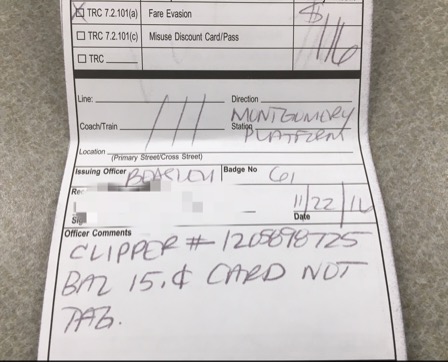 ☒ TRC 7.2.101(a) Fare Evasion $116
☐ TRC 7.2.101(c) Misuse Discount Card/Pass
☐ TRC
Line: Direction
MONTGOMERY
Coach/Train Station PLATFORM
Location
(Primary Street/Cross Street)
Issuing Officer Badge No 61
11/22/16
Date
Officer Comments
CLIPPER # 1205898725
BAL 15.¢ CARD NOT
TAG.